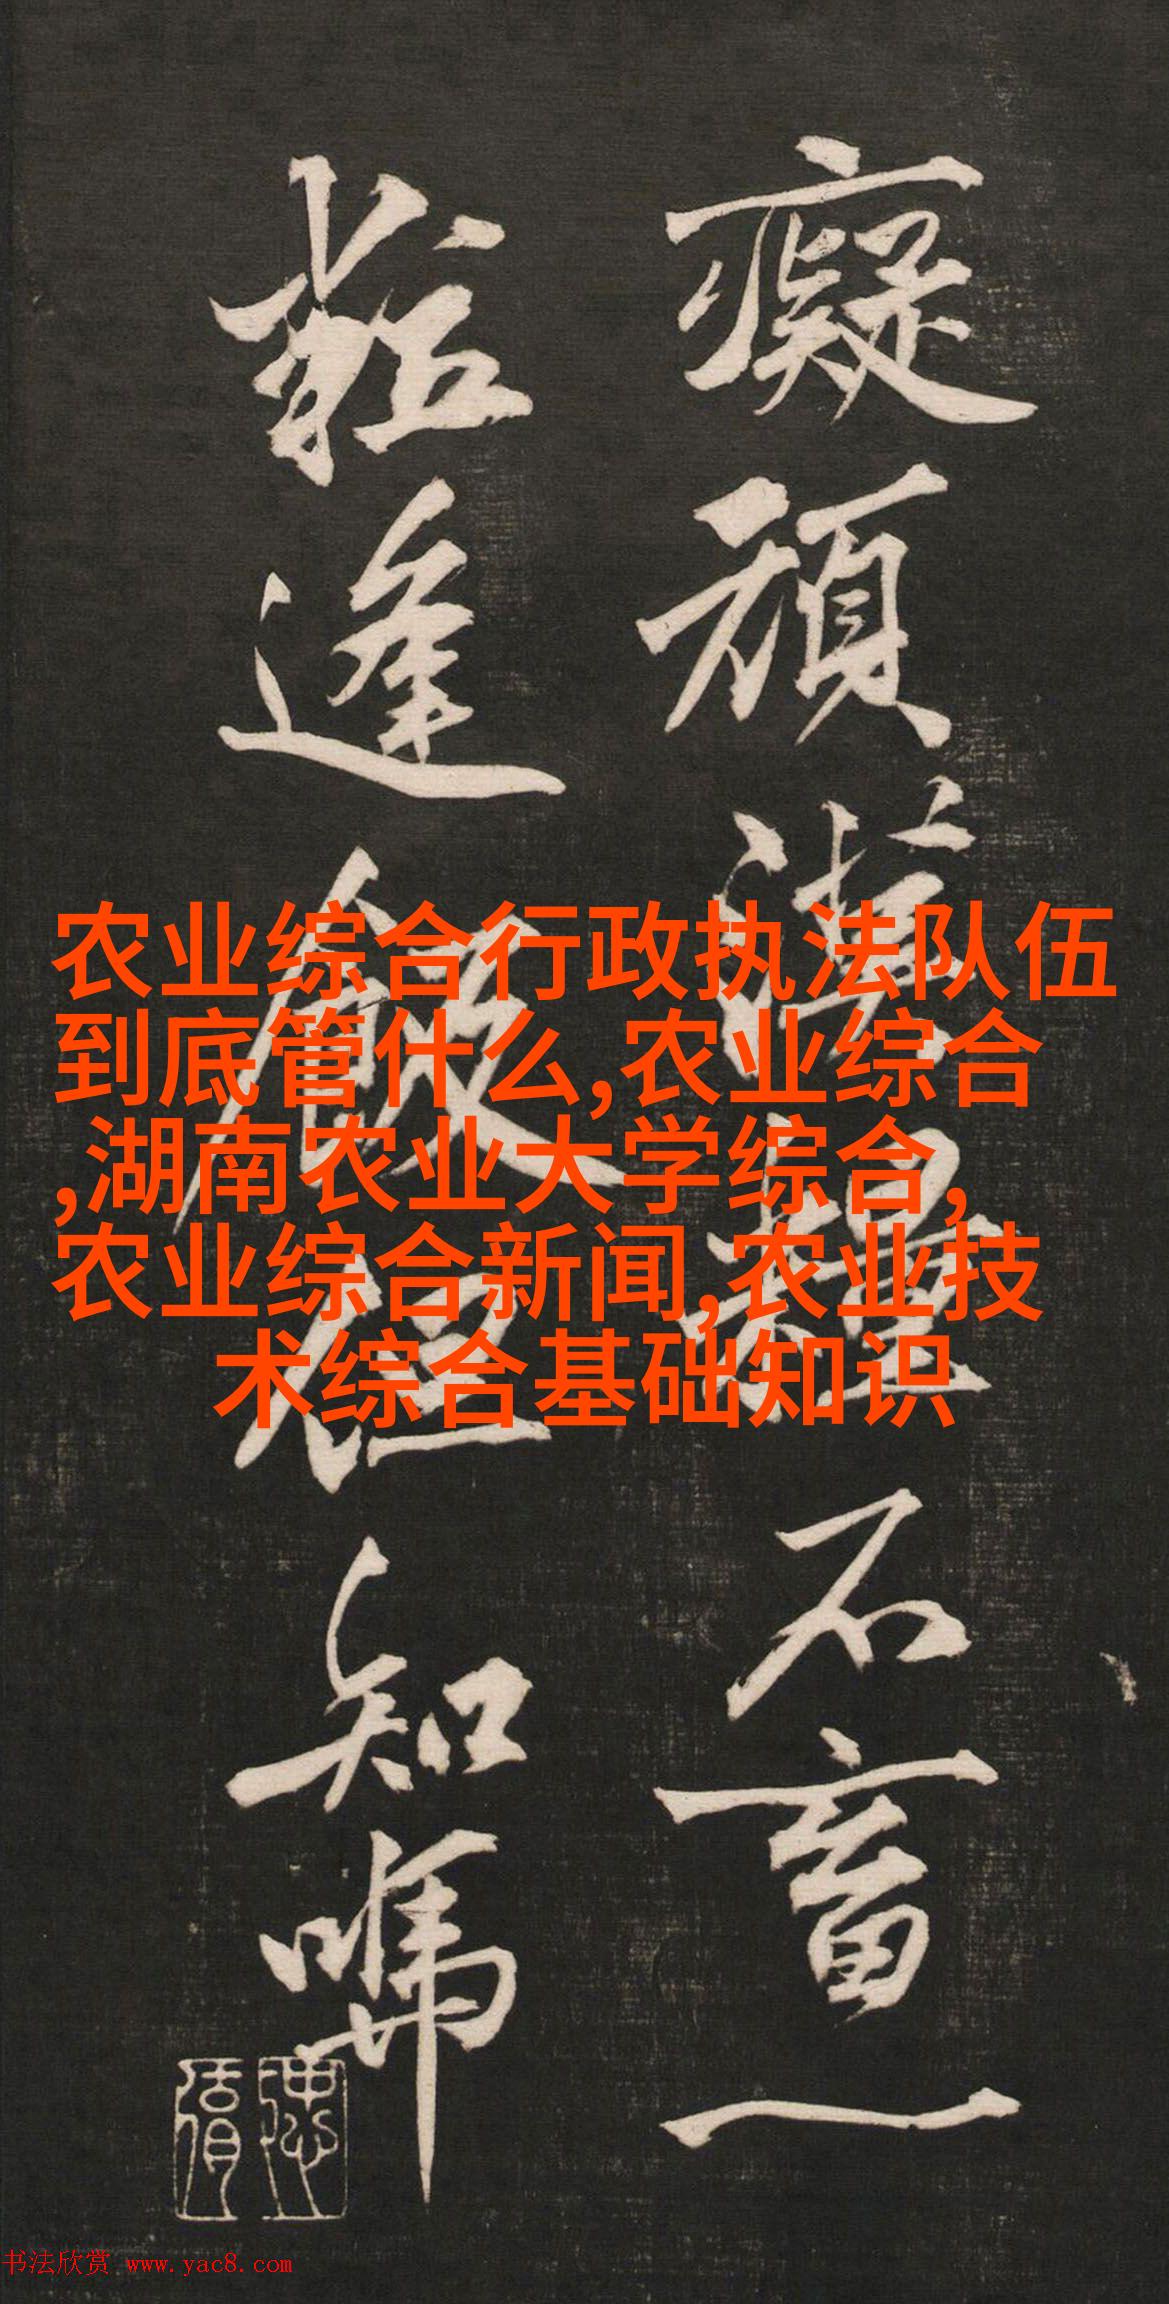 癡頑漢[?]不畜一
粒逢飯但知噇
农业综合行政执法队伍
到底管什么,农业综合
,湖南农业大学综合,
农业综合新闻,农业技
术综合基础知识
书法欣赏 www.yac8.com